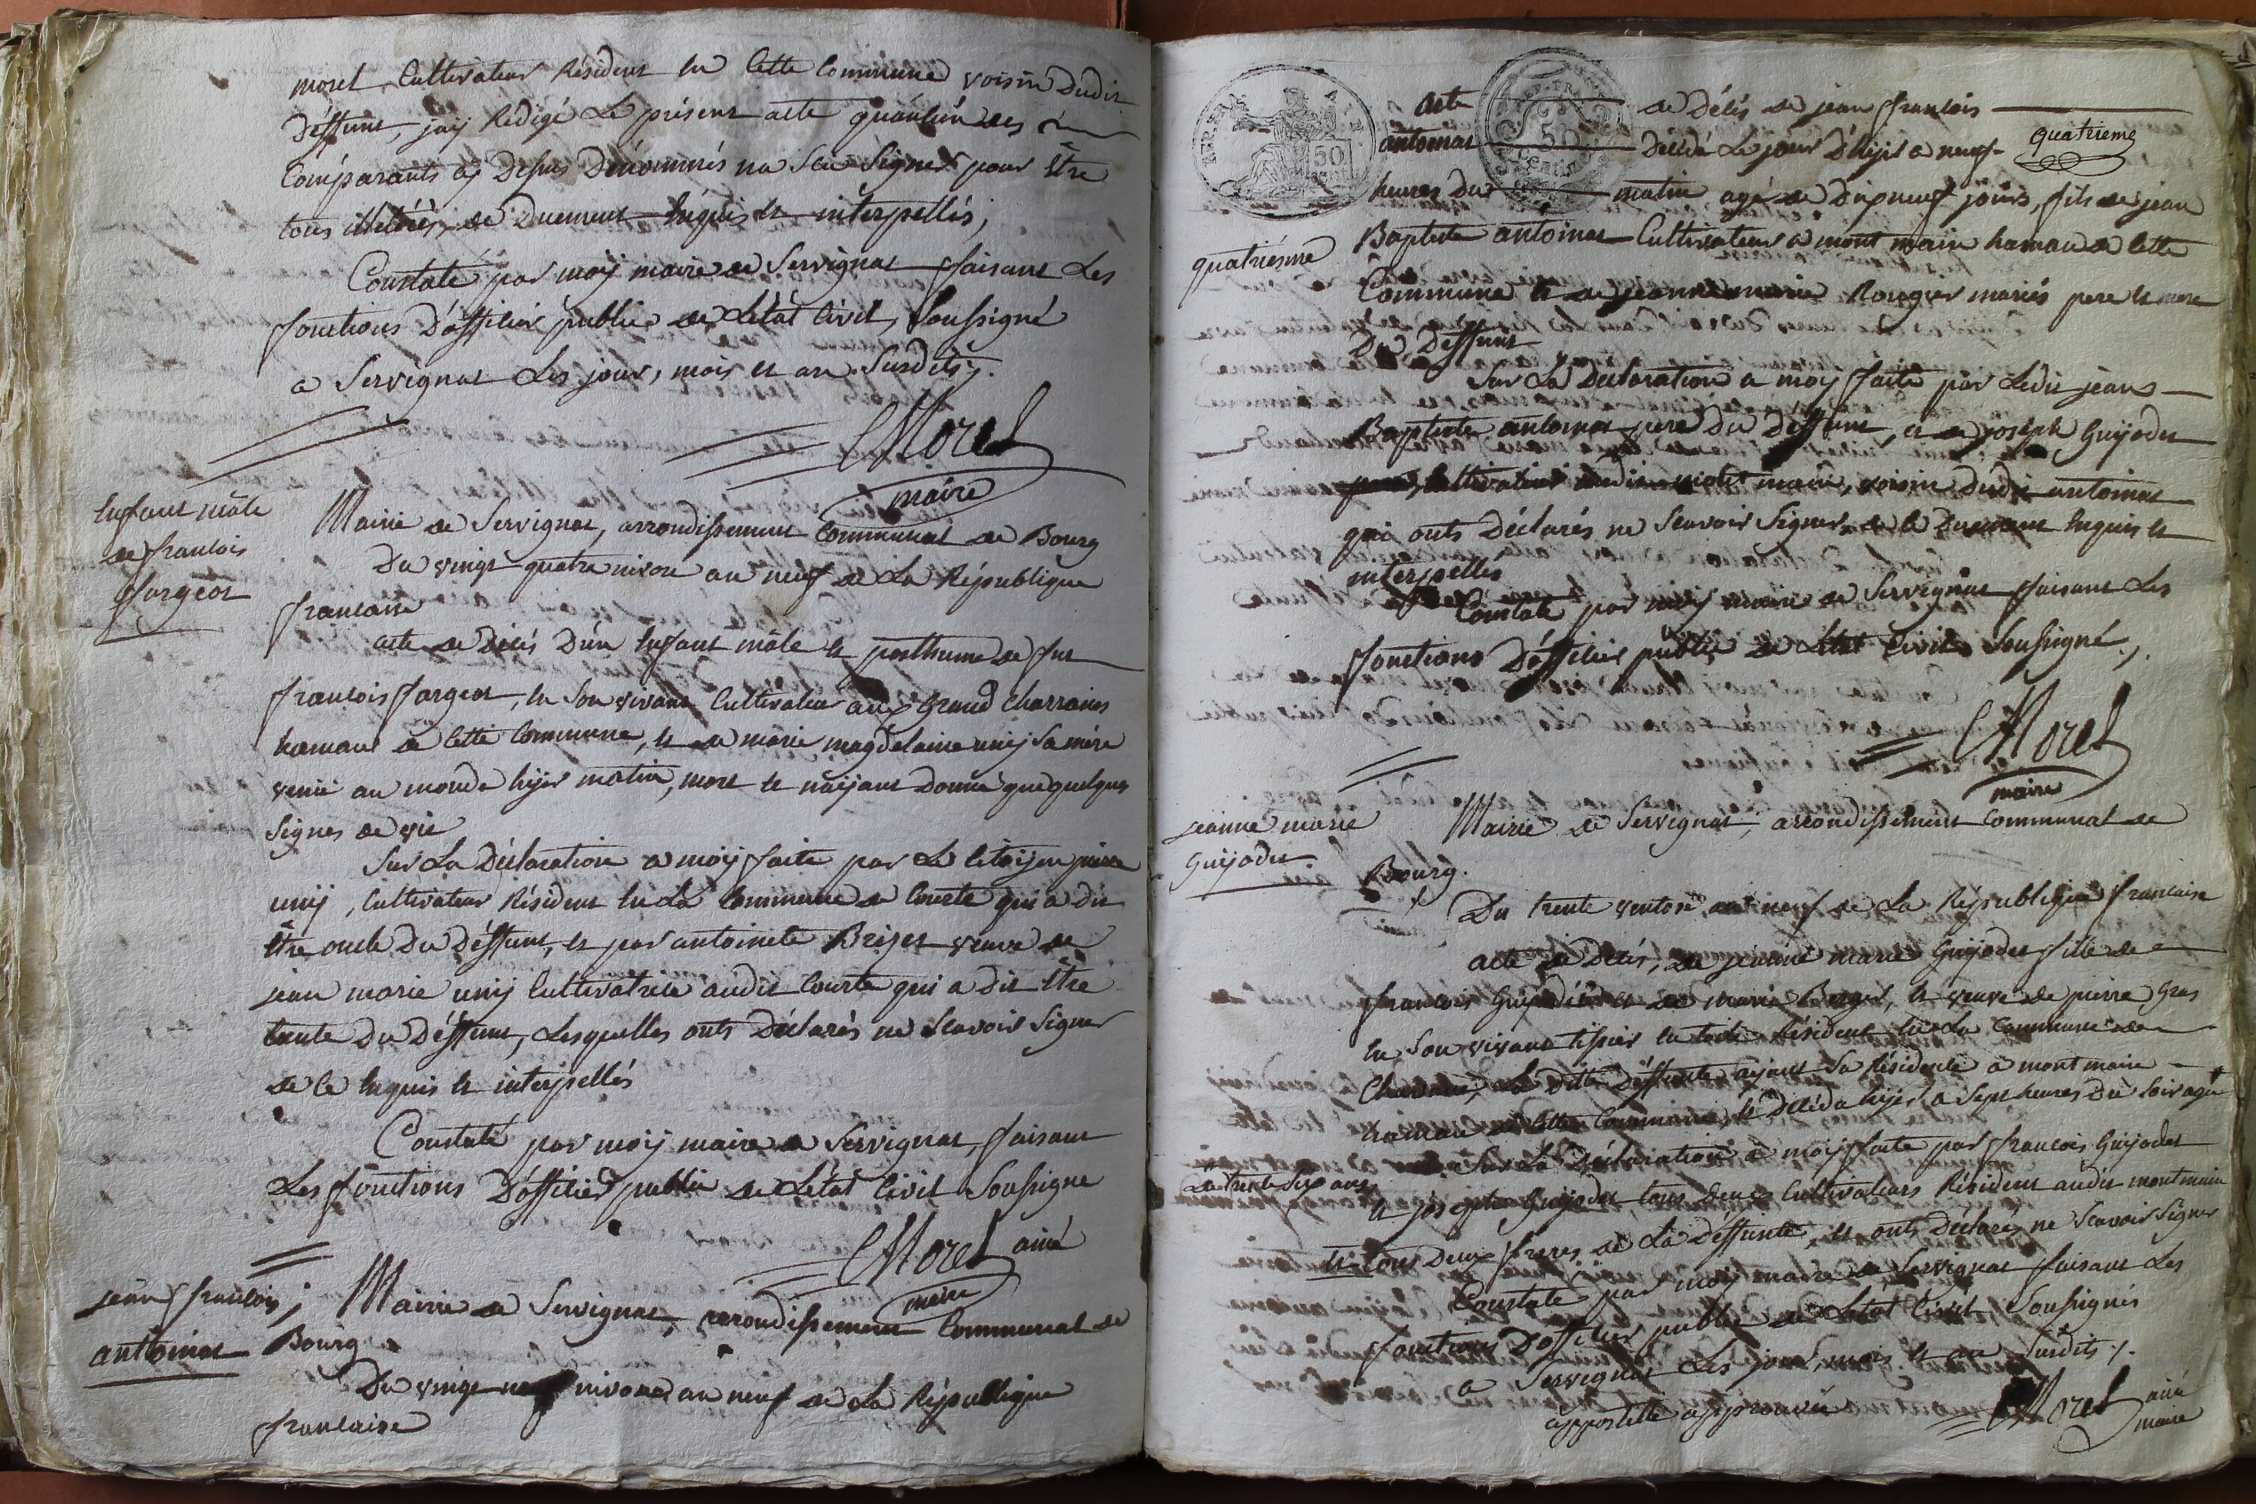 morel Cultivateur Résident en Cette Commune voisin dudit
déffunt, jaÿ Rédigé Le présent acte quaucun des
Comparants cy Desus Dénommés na Sçu Signer pour être
tous illetérés, de Duement Enquis et interpellés;
Constaté par moÿ maire de Servignat faisant Les
fonctions D'officier public de Létat Civil, Soussigné
a Servignat Les jour, mois et an Susdits;
CMorel
maire
Enfant mâle
de francois
fargeot
Mairie de Servignat, arrondissement Communal de Bourg
Du vingt quatre nivose an neuf de La République
francaise
acte de Décés D'un Enfant mâle et posthume de fut
francois fargeot, En Son vivant Cultivateur aux Grand Charraines
hamaue de Cette Commune, et de marie magdelaine uniÿ Sa mère
venie au monde hÿer matin, mort et naÿant Donné que quelques
Signes de vie
Sur La Déclaration a moÿ faite par Le Citoÿen pierre
uniÿ, Cultivateur Résident En La Commune de Courte qui a dit
être oncle Du Déffunt, et par antoinete Brejet veuve de
jean marie uniÿ Cultivatrice audit Courte qui a dit être
tente Du Déffunt, Lesquelles onts Déclarés ne Scavoir Signer
de Ce Enquis et interpellés
Constaté par moÿ maire de Servignat, faisant
Les fonctions D'officier public de Létat Civil Soussigne
CMorel ainé
maire
jean francois
antoinat
Mairie de Servignat, arrondissement Communal de
Bourg
Du vingt neuf nivose an neuf de La République
francaise
acte de Décés de jean francois
quatrieme
antoinat décédé Le jour D'hÿer a neuf
heures Du matin agé de Dixneuf jours, fils de jean
quatriésme
Baptiste antoinat Cultivateur a mont main hamau de Cette
Commune et de jeanne marie Rongier mariés pere et mere
Du Deffunt
Sur La Déclaration a moÿ faite par Ledit jean
Baptiste antoinat pere Du Déffunt, et de joseph Guÿodet
Cultivateur audit mont main, voisin dudit antoinat
qui onts Déclarés ne Scavoir Signer de Ce Duement Enquis et
interpellés
Constaté par moÿ maire de Servignat faisant Les
fonctions D'officier public de Létat Civil Soussigné.
CMorel
maire
jeanne marie
Guÿodet
Mairie de Servignat, arrondissement Communal de
Bourg.
Du trente ventose an neuf de La République francaise
acte de Décés, de jeanne marie Guÿodet fille de
francois Guÿodet et de marie et veuve de pierre Gras
En Son vivant tissier En toile Résident En La Commune de
La ditte Déffunte aÿant Sa Résidence a mont main
hamau de Cette Commune et Décéda hÿer a Sept heures Du Soir agée
Sur La Déclaration a moÿ faite par francois Guÿodet
de trente Six ans
et joseph Guÿodet tous Deux Cultivateurs Résident audit mont main
et tous Deux freres de La Déffunte, et onts Déclarés ne Scavoir Signer
Constaté par moÿ maire de Servignat faisant Les
fonctions D'officier public de Létat Civil Soussignés
a Servignat Les jour, mois et an Susdits /.
appostille approuvée
CMorel ainé
maire